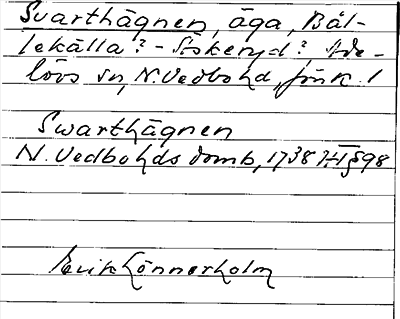 Svarthägnen, äga, Bäl-
lekälla? - Stskenyd? Ade-
lövs sn, N. Vedbo hd, Jönk. l
Swarthägnen
N. Vedbo hds domb, 1738 HI § 98
Erik Lönnerholm